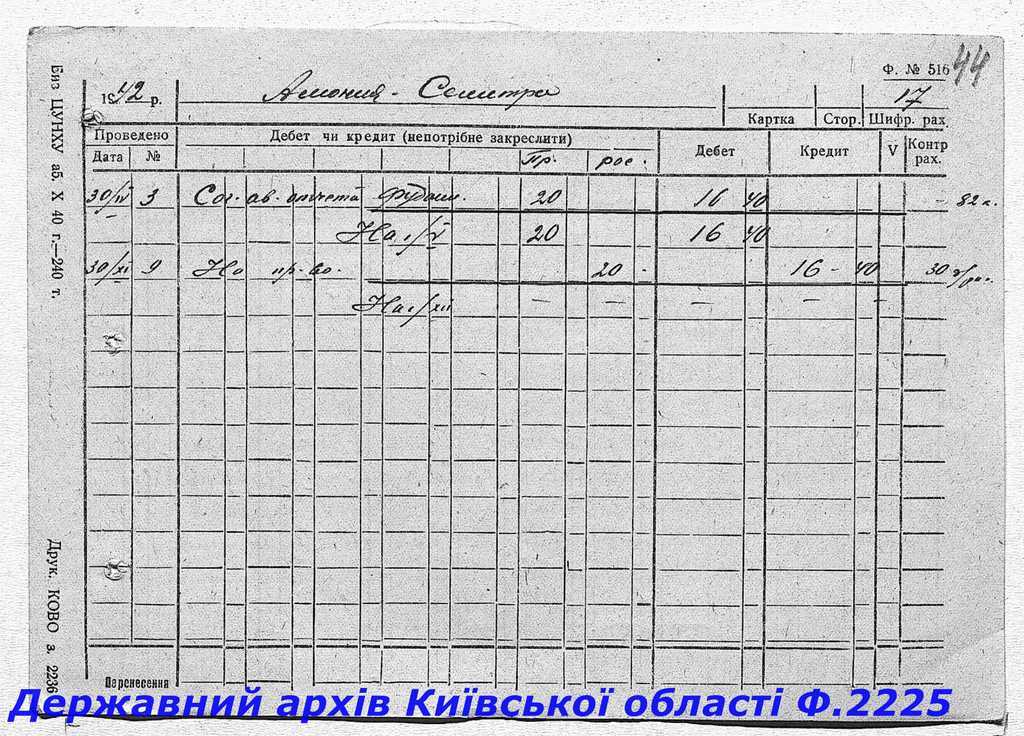 Ф. № 516 44
1942 р. Амония - Селитра 17
Картка Стор. Шифр. рах.
Проведено Дебет чи кредит (непотрібне закреслити) Дебет Кредит V Контр рах.
Дата № Пр. рос.
30/IV 3 Сог. ав. отчета 20 16 40 82
На 1/V 20 16 40
30/XI 9 На пр-во. 20 - 16 - 40 30
На 1/XII — — — — —
Перенесення
Биз ЦУНХУ аб. X 40 г.—240 т.
Друк. КОВО з. 2236
Державний архів Київської області Ф.2225